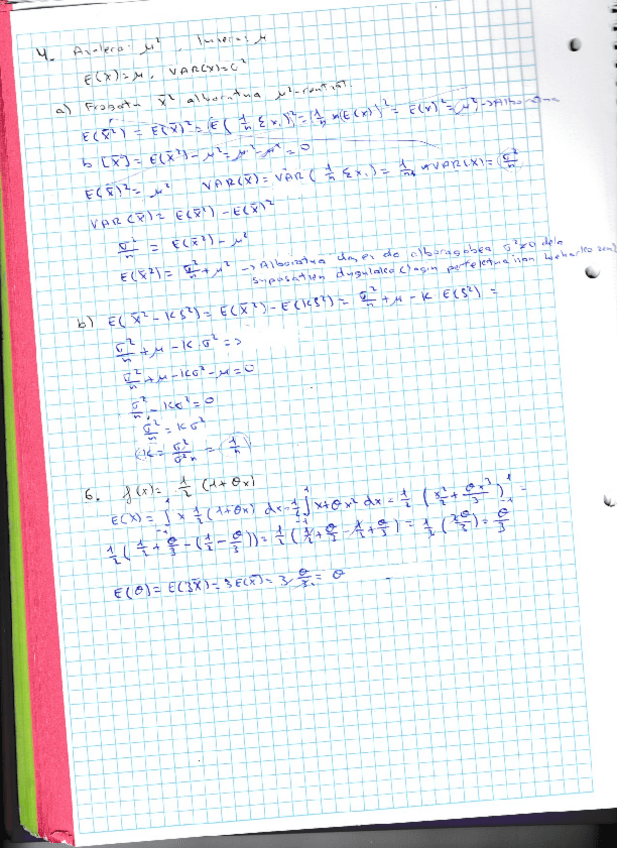 4. Azalera: μ², Luzera: μ
E(x)=μ, VAR(x)=σ²
a) Frogatu x̄² alboratua μ²-rentzat.
E(x̄²) = E(x̄)² = (E(1/n Σxᵢ))² = (1/n n(E(x))² = E(x)² = μ² → Alboratua
b[x̄] = E(x̄²) - μ² = μ² - μ² = 0
E(x̄)² = μ² VAR(x̄) = VAR(1/n Σxᵢ) = 1/n² nVAR(x) = σ²/n
VAR(x̄) = E(x̄²) - E(x̄)²
σ²/n = E(x̄²) - μ²
E(x̄²) = σ²/n + μ² → Alboratua da, ez da alboragabea σ²≠0 dela
suposatuz
b) E(x̄² - KS²) = E(x̄²) - E(KS²) = σ²/n + μ - K E(S²) =
σ²/n + μ - K·σ² =>
σ²/n + μ - Kσ² - μ = 0
σ²/n - Kσ² = 0
σ²/n = Kσ²
K = σ²/σ²n = 1/n
6. f(x) = 1/2 (1+θx)
E(x) = ∫₋₁¹ x 1/2 (1+θx) dx = 1/2 ∫₋₁¹ x+θx² dx = 1/2 (x²/2 + θx³/3)₋₁¹ =
1/2 (1/2 + θ/3 - (1/2 - θ/3)) = 1/2 (1/2 + θ/3 - 1/2 + θ/3) = 1/2 (2θ/3) = θ/3
E(θ) = E(3x̄) = 3E(x̄) = 3 θ/3 = θ